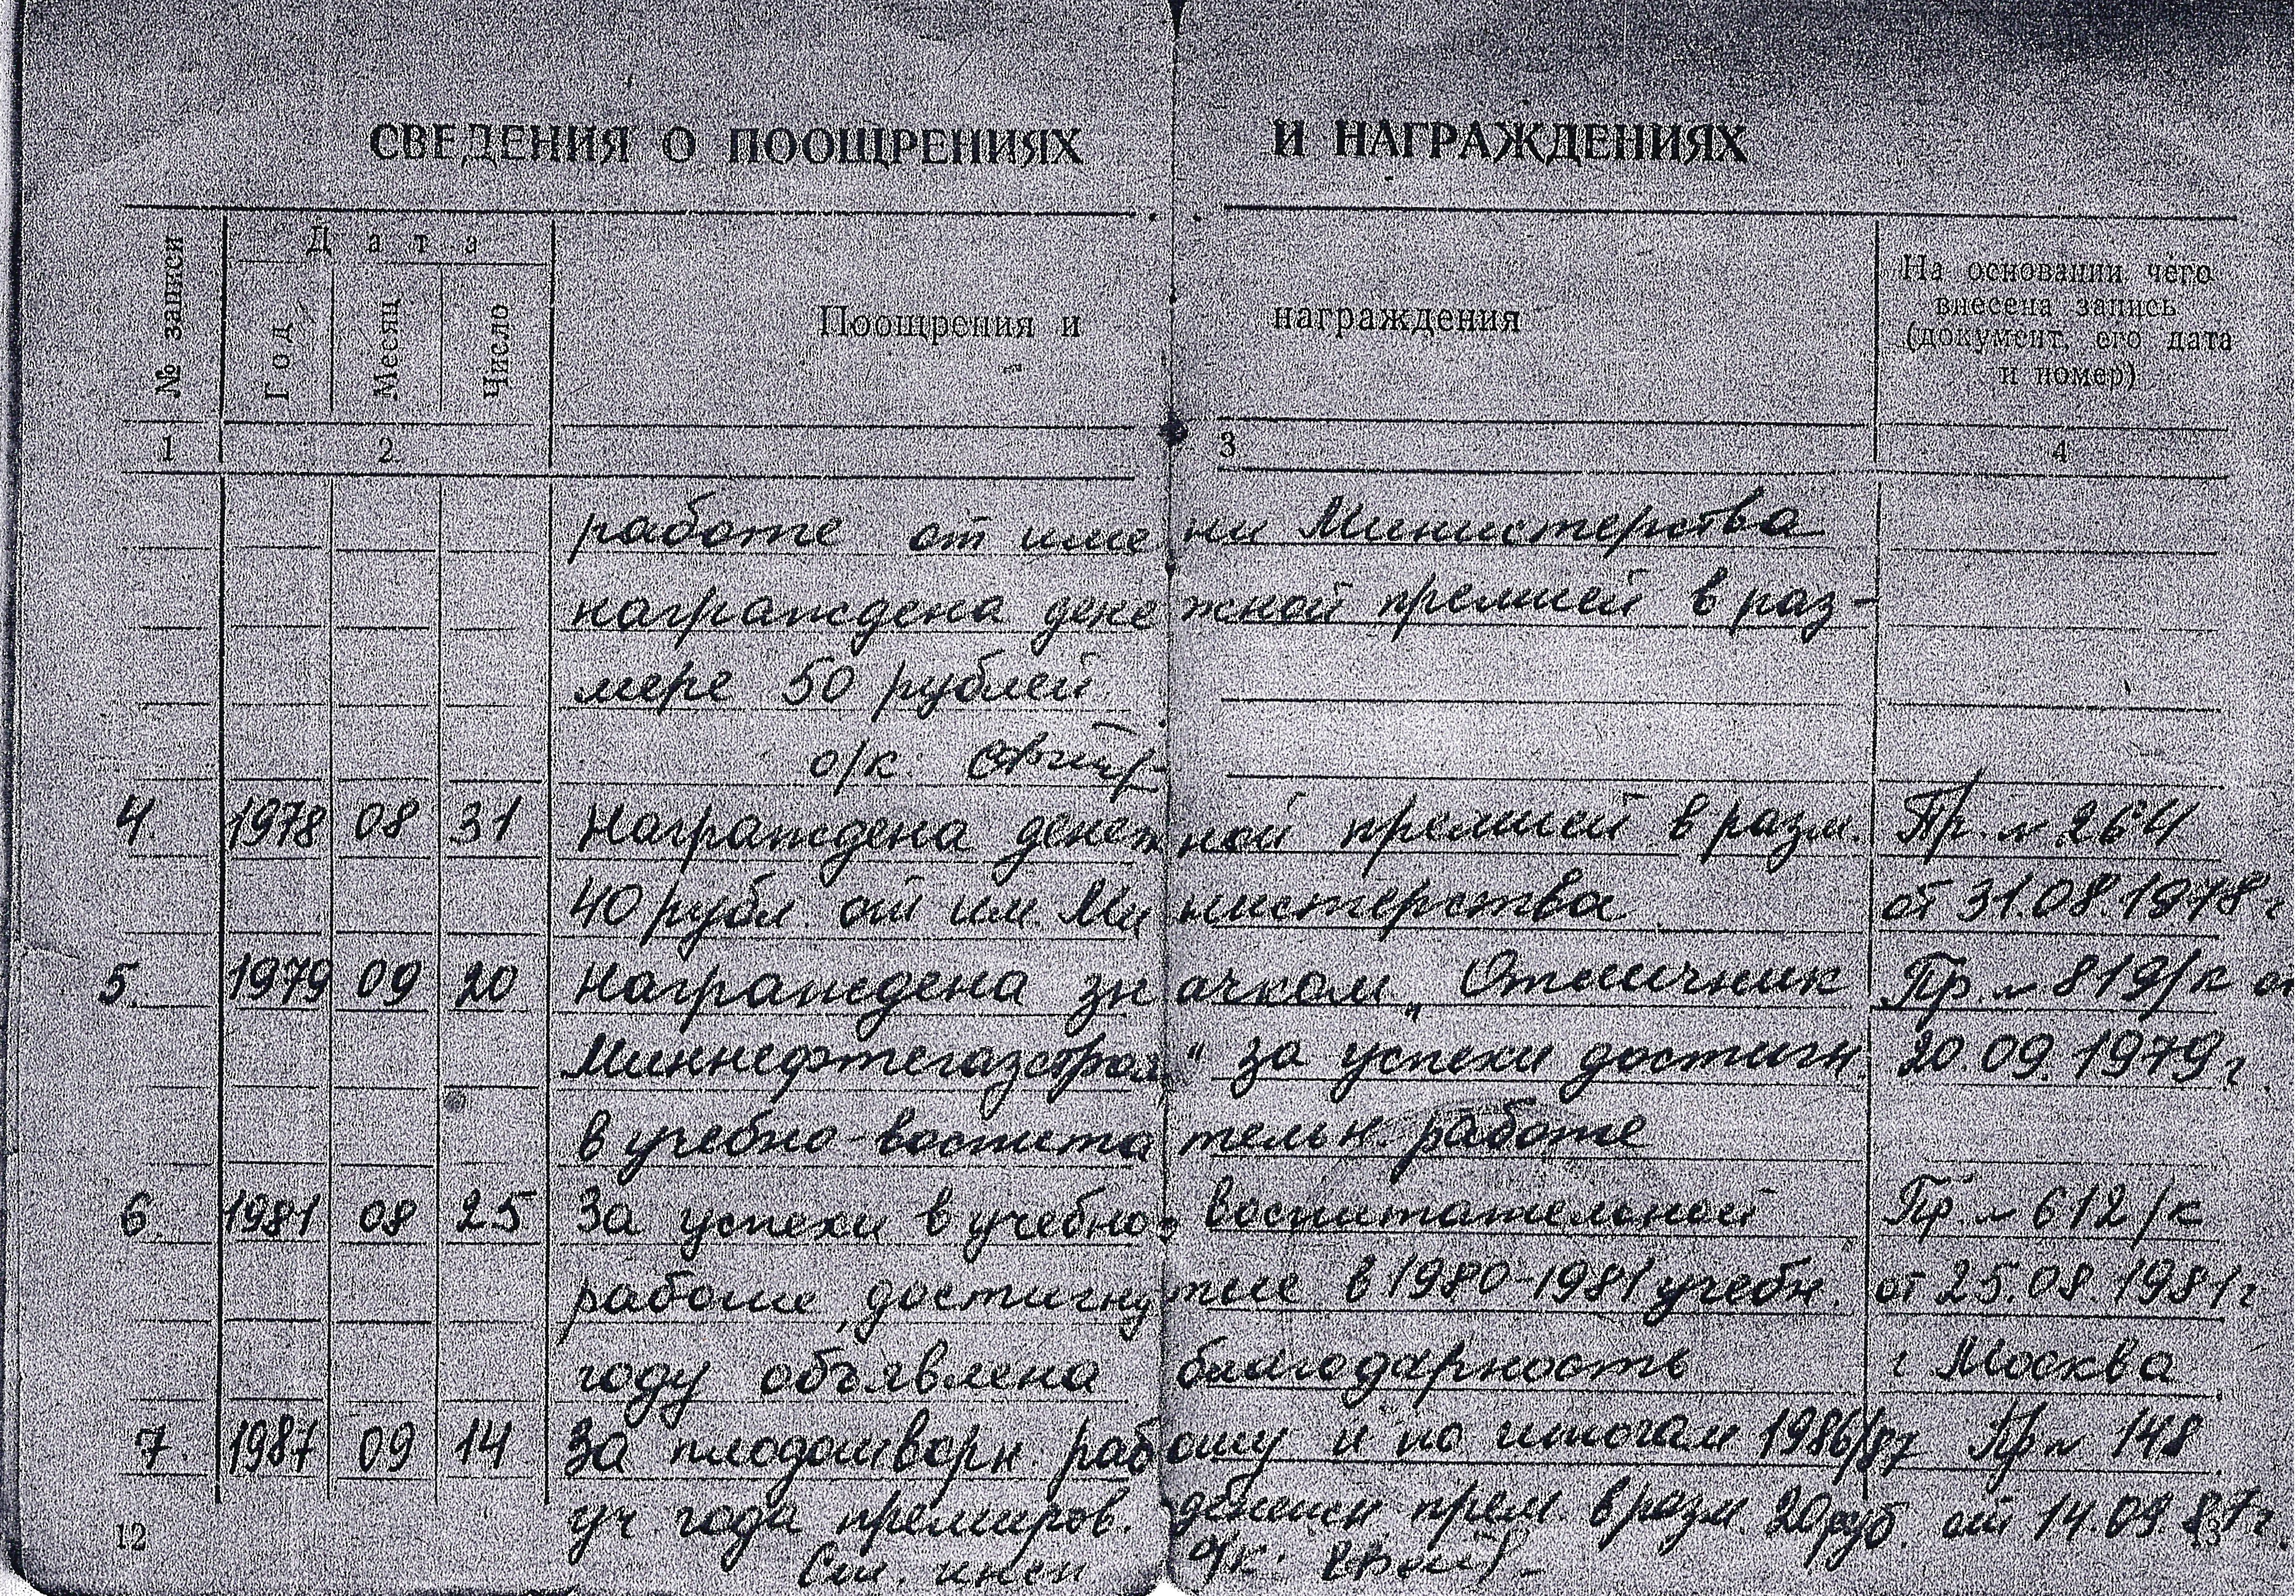 СВЕДЕНИЯ О ПООЩРЕНИЯХ И НАГРАЖДЕНИЯХ
№ записи
Дата
Год
Месяц
Число
Поощрения и награждения
На основании чего
внесена запись
(документ, его дата
и номер)
1 2 3 4
работе от имени Министерства
награждена денежной премией в раз-
мере 50 рублей
о/к:
4. 1978 08 31 Награждена денежной премией в разм. Пр. № 264
40 рубл. от им. Министерства от 31.08.1978 г
5. 1979 09 20 Награждена значком „Отличник Пр. № 819/к от
Миннефтегазстроя“ за успехи достигн. 20.09.1979 г.
в учебно-воспитательн. работе
6. 1981 08 25 За успехи в учебно-воспитательной Пр. № 612/к
работе, достигнутые в 1980-1981 учебн. от 25.08.1981 г
году объявлена благодарность г Москва
7. 1987 09 14 За плодотворн. работу и по итогам 1986/87 Пр № 148
уч. года премиров. денежн прем. в разм. 20 руб. от 14.09.87 г.
Ст. инсп о/к:
12 13